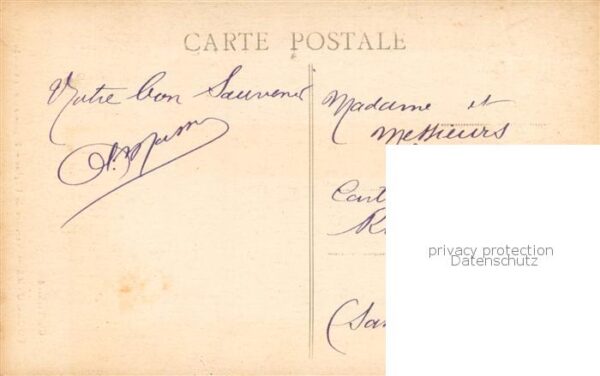 CARTE POSTALE
Votre bon Souvenir
Madame et
Messieurs
privacy protection
Datenschutz